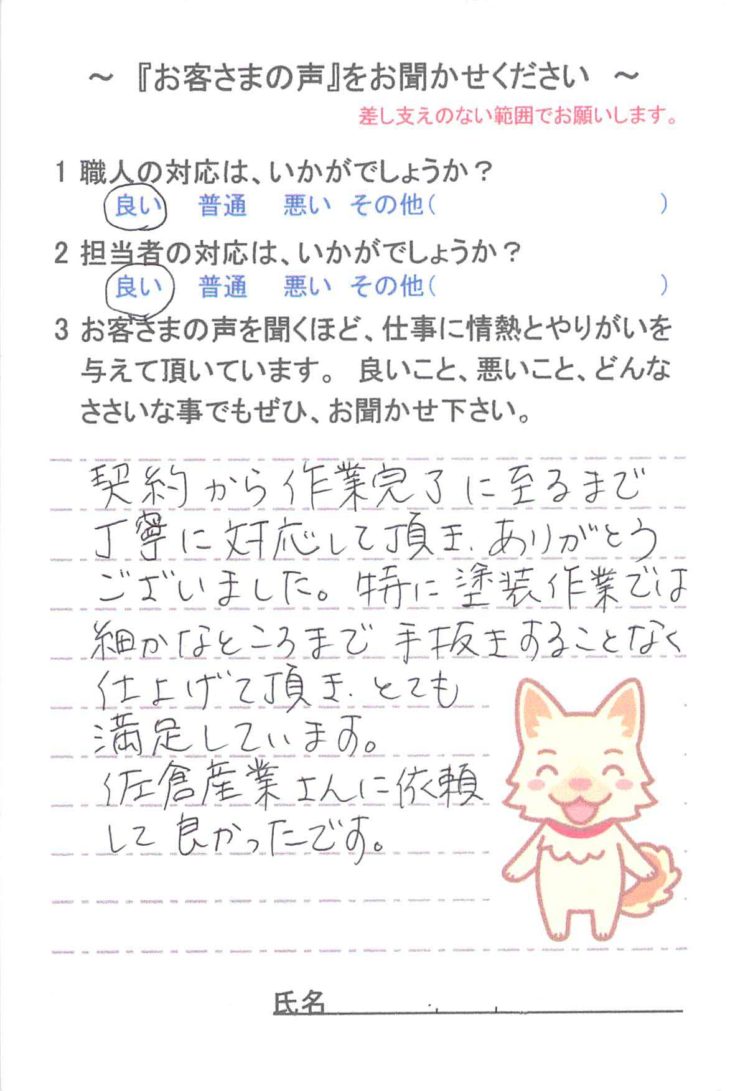 ～ 『お客さまの声』をお聞かせください ～
差し支えのない範囲でお願いします。
1 職人の対応は、いかがでしょうか？
良い 普通 悪い その他( )
2 担当者の対応は、いかがでしょうか？
良い 普通 悪い その他( )
3 お客さまの声を聞くほど、仕事に情熱とやりがいを
与えて頂いています。 良いこと、悪いこと、どんな
ささいな事でもぜひ、お聞かせ下さい。
契約から作業完了に至るまで
丁寧に対応して頂き、ありがとう
ございました。特に塗装作業では
細かなところまで手抜きをすることなく
仕上げて頂き、とても
満足しています。
佐倉産業さんに依頼
して良かったです。
氏名